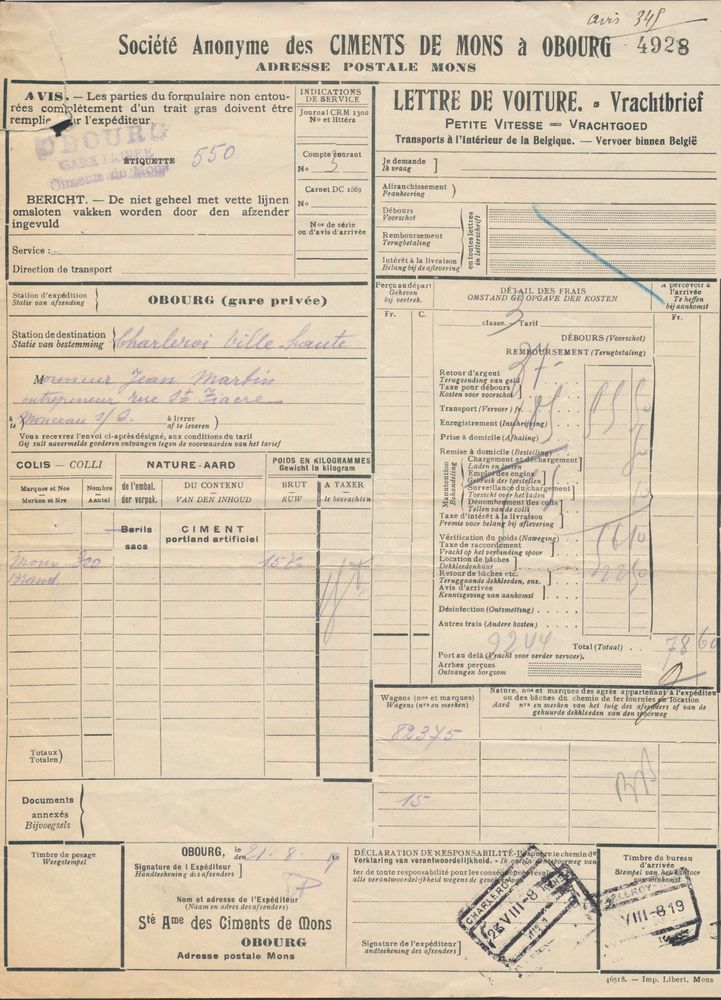 avis 345
Société Anonyme des CIMENTS DE MONS à OBOURG 4928
ADRESSE POSTALE MONS
AVIS. — Les parties du formulaire non entou-
rées complètement d'un trait gras doivent être
remplie par l'expéditeur.
OBOURG
GARE PRIVÉE
Ciments de Mons
ÉTIQUETTE 550
BERICHT. — De niet geheel met vette lijnen
omsloten vakken worden door den afzender
ingevuld
Service :
Direction de transport
INDICATIONS
DE SERVICE
Journal CRM 1302
No et littéra
Compte Courant
No 5
Carnet DC 1669
No
Nos de série
ou d'avis d'arrivée
LETTRE DE VOITURE. - Vrachtbrief
PETITE VITESSE — VRACHTGOED
Transports à l'intérieur de la Belgique. — Vervoer binnen België
Je demande
Ik vraag
Affranchissement
Frankeering
Débours
Voorschot
Remboursement
Terugbetaling
Intérêt à la livraison
Belang bij de aflevering
en toutes lettres
in letterschrift
Station d'expédition
Statie van afzending
OBOURG (gare privée)
Station de destination
Statie van bestemming
Charleroi Ville haute
Monsieur Jean Martin
entrepreneur rue St Fiacre
à
te
Monceau s/S.
à livrer
af te leveren
Vous recevrez l'envoi ci-après désigné, aux conditions du tarif
Gij zult navermelde goederen ontvangen tegen de voorwaarden van het tarief
COLIS — COLLI
NATURE - AARD
POIDS EN KILOGRAMMES
Gewicht in kilogram
Marques et Nos
Merken et Nrs
Nombre
Aantal
de l'embal.
der verpak.
DU CONTENU
VAN DEN INHOUD
BRUT
RUW
A TAXER
te bevrachten
Barils
sacs
CIMENT
portland artificiel
Mons 300
Brand
Totaux
Totalen
Documents
annexés
Bijvoegsels
Perçu au départ
Geheven
bij vertrek.
Fr. C.
DÉTAIL DES FRAIS
OMSTAND GE OPGAVE DER KOSTEN
A percevoir à
l'arrivée
Te heffen
bij aankomst
Fr.
classe. 3 Tarif
DÉBOURS (Voorschot)
REMBOURSEMENT (Terugbetaling)
27-
Retour d'argent
Terugzending van geld
Taxe pour débours
Kosten voor voorschot
Transport (Vervoer)
Enregistrement (Inschrijving)
Prise à domicile (Afhaling)
Remise à domicile (Bestelling)
Manutention
Behandeling
Chargement et déchargement
Laden en lossen
Emploi des engins
Gebruik der toestellen
Surveillance du chargement
Toezicht over het laden
Dénombrement des colis
Tellen van de colli
Taxe d'intérêt à la livraison
Premie voor belang bij aflevering
Vérification du poids (Naweging)
Taxe de raccordement
Vracht op het verbinding spoor
Location de bâches
Dekkleedenhuur
Retour de bâches etc.
Teruggaande dekkleeden, enz.
Avis d'arrivée
Kennisgeving van aankomst
Désinfection (Ontsmetting)
Autres frais (Andere kosten)
9244
Total (Totaal)
78 60
Port au delà (Vracht voor verder vervoer).
Arrhes perçues
Ontvangen borgsom
Wagons (nos et marques)
Wagens (nrs en merken)
Nature, nos et marques des agrès appartenant à l'expéditeur
ou des bâches du chemin de fer fournies en location
Aard nrs en merken van het tuig des afzenders of van de
gehuurde dekkleeden van den spoorweg
82375
15
Timbre de pesage
Weegstempel
OBOURG, le
den
21. 8. 19
Signature de l'Expéditeur
Handteekening des afzenders
Nom et adresse de l'Expéditeur
(Naam en adres des afzenders)
Sté Ame des Ciments de Mons
OBOURG
Adresse postale Mons
DÉCLARATION DE RESPONSABILITÉ.
Verklaring van verantwoordelijkheid.
fer de toute responsabilité pour les
alle verantwoordelijkheid wegens de
Signature de l'expéditeur
andteekening des afzenders
CHARLEROI
23 VIII-8 19
Timbre du bureau
d'arrivée
Stempel van het kantoor
van aankomst
LEROY
VIII-8 19
46518. — Imp. Libert, Mons